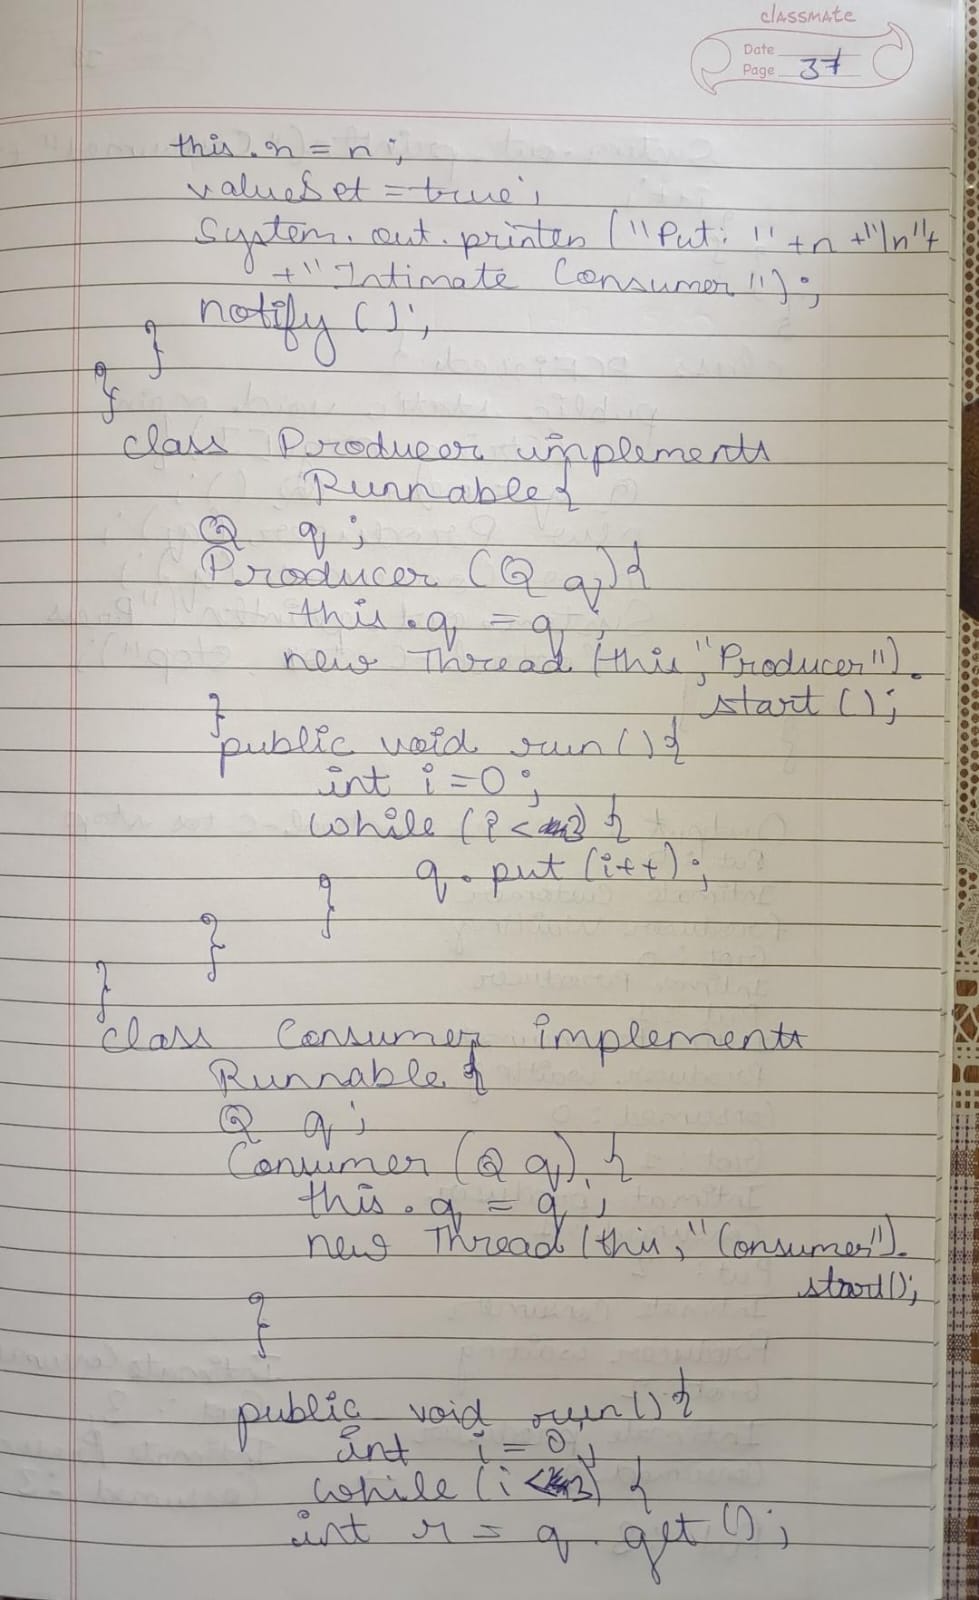 classmate
Date
Page 37
this.n = n;
valueSet = true;
System.out.println ("Put: " +n +"\n"+
+" Intimate Consumer ");
notify ();
}
}
class Producer implements
Runnable{
Q q;
Producer (Q q){
this.q = q;
new Thread (this, "Producer").
start ();
}
public void run(){
int i=0;
while (i<3) {
q.put (i++);
}
}
}
class Consumer implements
Runnable {
Q q;
Consumer (Q q) {
this.q = q;
new Thread (this, "Consumer").
start();
}
public void run() {
int i = 0;
while (i <3) {
int r = q.get ();